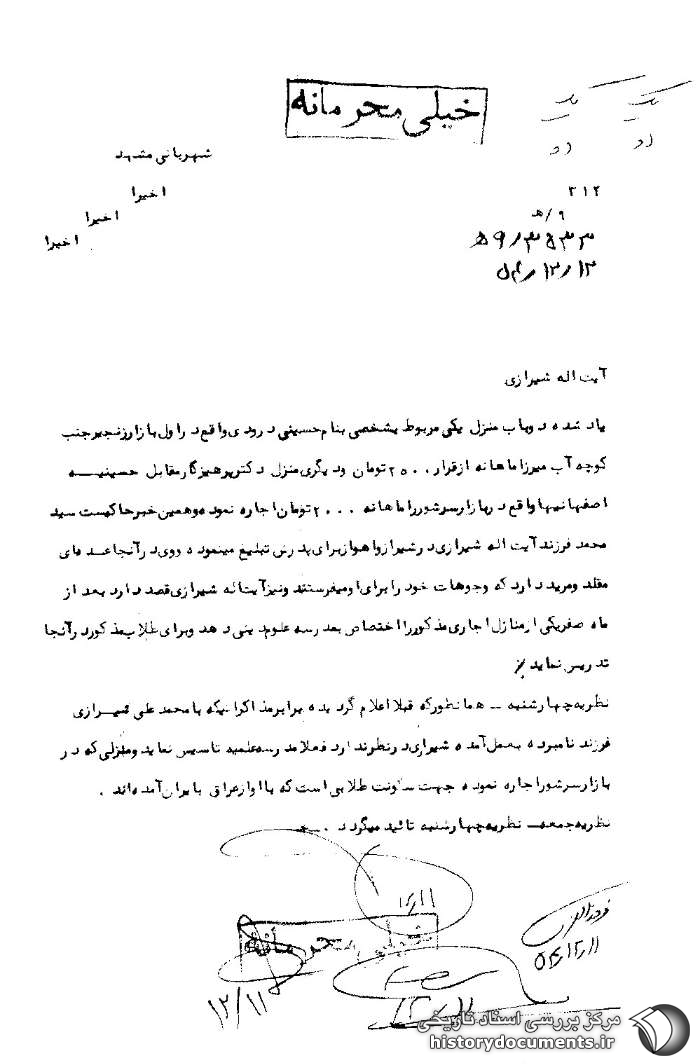 خیلی محرمانه
شهربانی مشهد
اخیرا
اخیرا
اخیرا
۳۱۲
۹/هـ
آیت اله شیرازی
یاد شده دوباب منزل یکی مربوط بشخصی بنام حسینی درودی واقع در اول بازار زنجیر جنب
کوچه آب میرزا ماهانه از قرار ۲۵۰۰ تومان ودیگری منزل دکتر پرهیزگار مقابل حسینیــه
اصفهانیها واقع در بازار سرشور را ماهانه ۲۰۰۰ تومان اجاره نموده وهمین خبر حاکیست سید
محمد فرزند آیت اله شیرازی در شیراز واهواز برای پدرش تبلیغ مینموده ووی در آنجا عده ای
مقلد ومرید دارد که وجوهات خود را برای او میفرستند ونیز آیت اله شیرازی قصد دارد بعد از
ماه صفر یکی از منازل اجاری مذکور را اختصاص بمدرسه علوم دینی دهد وبرای طلاب مذکور در آنجا
تدریس نماید
نظریه چهارشنبه ــ همانطور که قبلا اعلام گردیده برابر مذاکراتیکه با محمد علی شیــرازی
فرزند نامبرده بعمل آمده شیرازی در نظر ندارد فعلا مدرسه علمیه تاسیس نماید ومنزلی که در
بازار سرشور اجاره نموده جهت سکونت طلابی است که با او از عراق بایران آمده‌اند .
نظریه جمعه ــ نظریه چهارشنبه تائید میگردد .
۱۲/۱۱
خیلی محرمانه
۵۴/۱۲/۱۱
۱۲/۱۱
۱۲/۱۱
مرکز بررسی اسناد تاریخی
historydocuments.ir